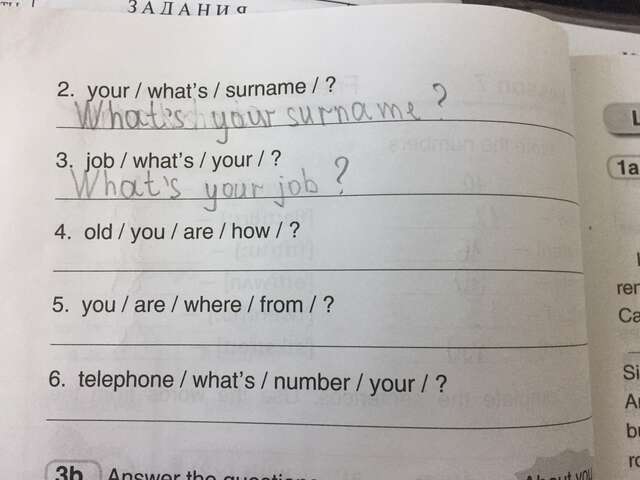 ЗАДАНИЯ
2. your / what's / surname / ?
What's your surname ?
3. job / what's / your / ?
What's your job ?
4. old / you / are / how / ?
5. you / are / where / from / ?
6. telephone / what's / number / your / ?
3b Answer the questions
About you
1a